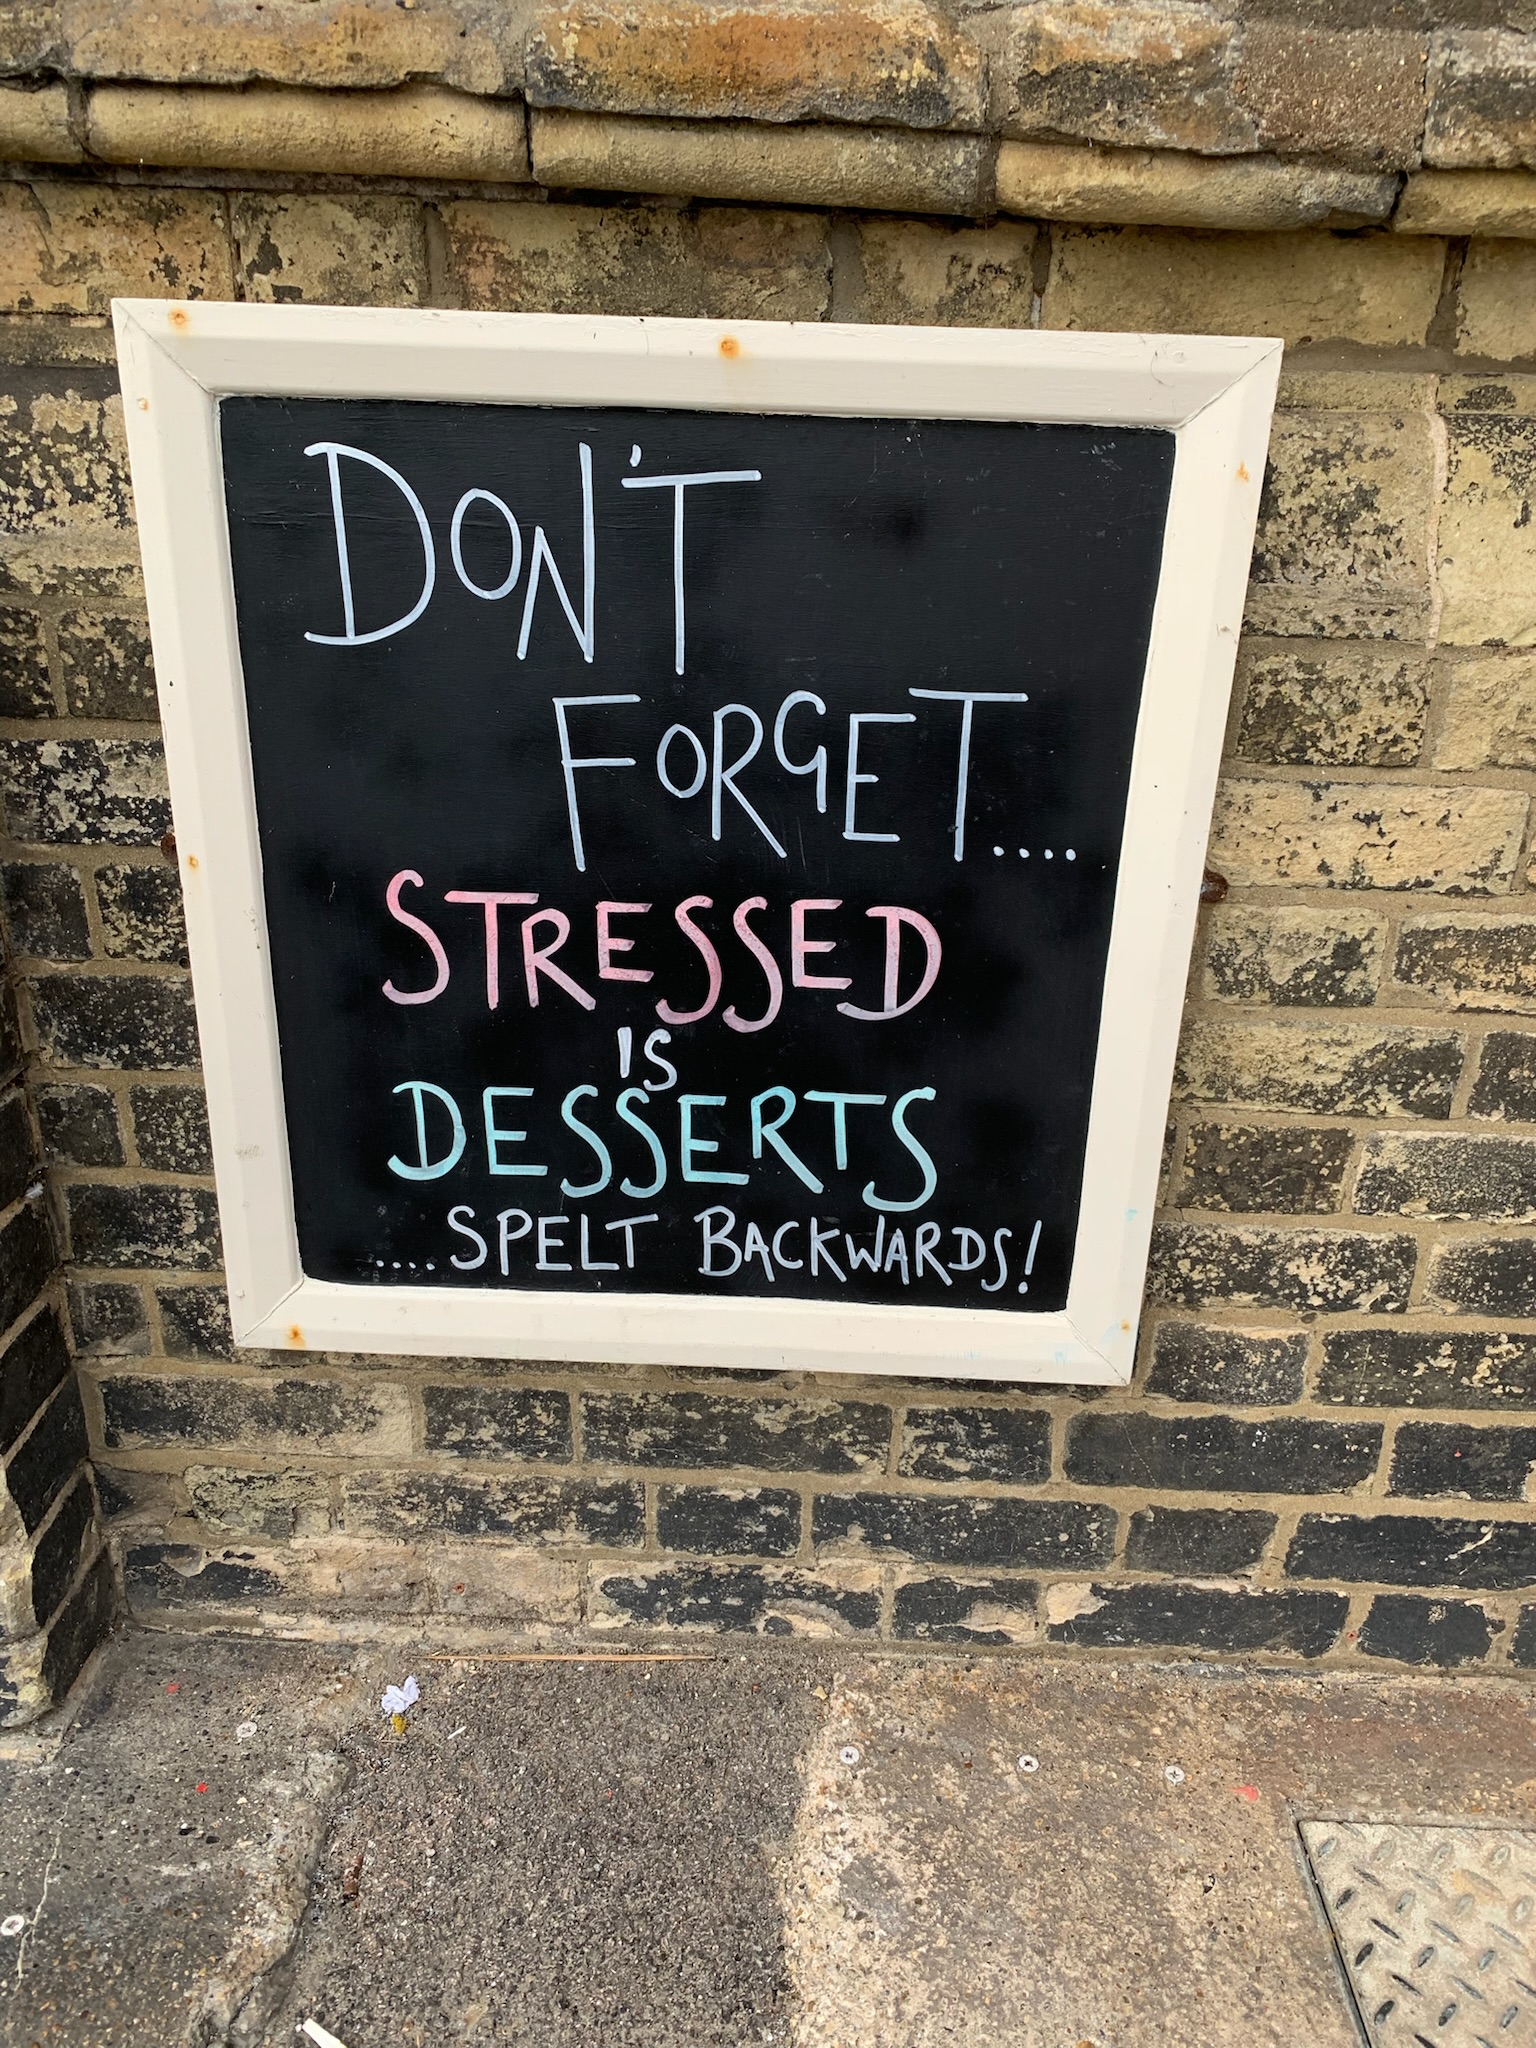 DON'T
FORGET....
STRESSED
IS
DESSERTS
....SPELT BACKWARDS!